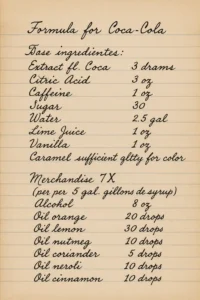 Formula for Coca-Cola
Base ingredientes:
Extract fl. Coca 3 drams
Citric Acid 3 oz
Caffeine 1 oz
Sugar 30
Water 2.5 gal
Lime Juice 1 oz
Vanilla 1 oz
Caramel sufficient gltty for color
Merchandise 7X
(per per 5 gal. gillons de syrup)
Alcohol 8 oz
Oil orange 20 drops
Oil lemon 30 drops
Oil nutmeg 10 drops
Oil coriander 5 drops
Oil neroli 10 drops
Oil cinnamon 10 drops